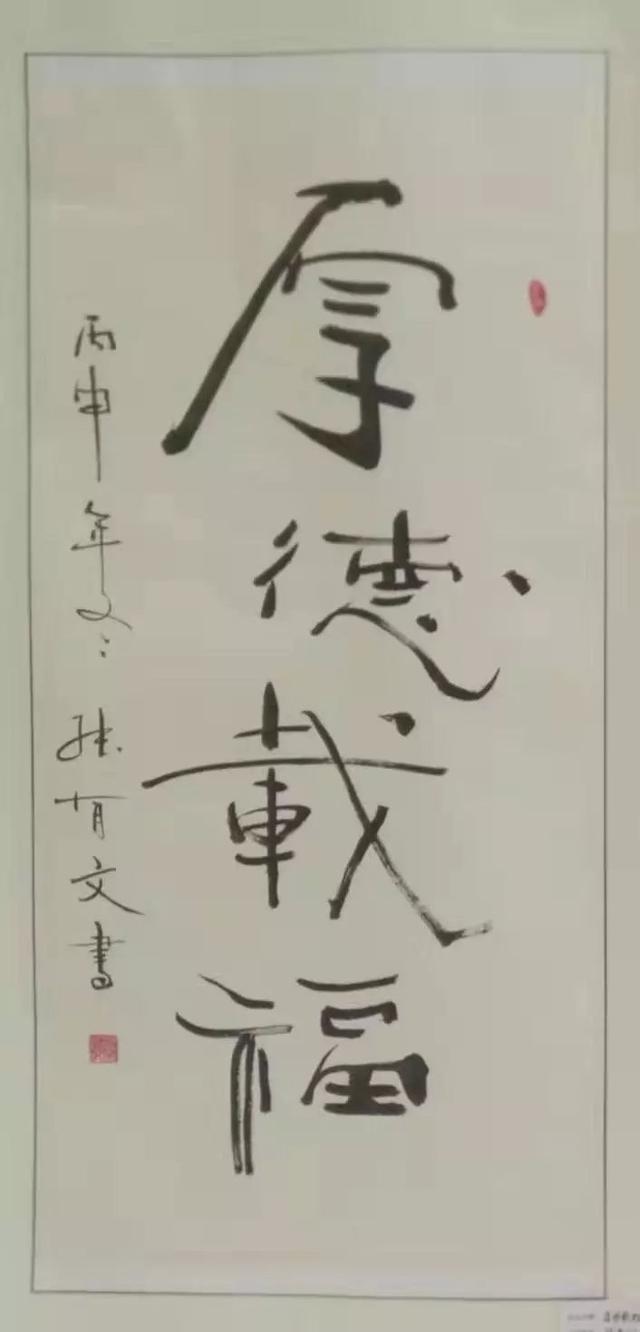 厚德載福
丙申年冬 张有文書